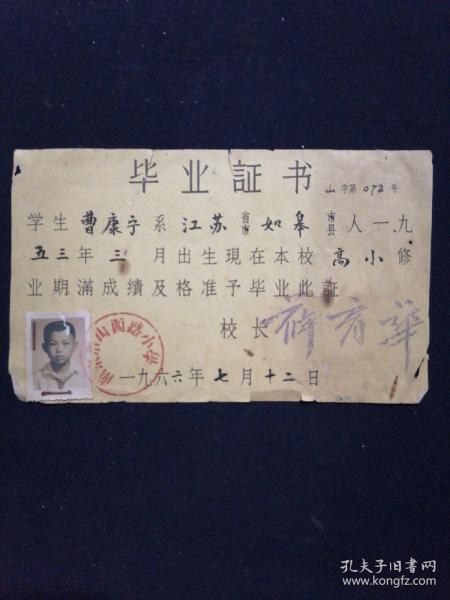 毕业証书
山 字第 072 号
学生 曹康宁 系 江苏 省市 如皋 市县 人一九
五三年 三 月出生現在本校 高小 修
业期滿成績及格准予毕业此証
校长
南京市山西路小学
一九六六年 七 月 十二 日
孔夫子旧书网
www.kongfz.com